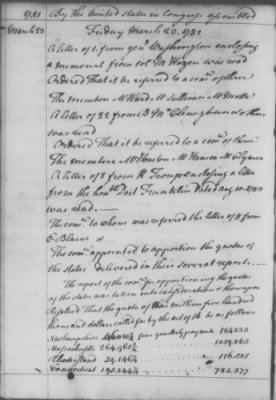 1781 By the United States in Congress assembled
March 23 Friday March 23. 1781
A letter of 1. from genl Washington enclosing
a memorial from col M Hazen was read
Ordered That it be referred to a comee of three
The members Mr Ward Mr Sullivan Mr Motte
A letter of 22 from B Mc Clenaghan & others
was read
Ordered That it be referred to a comee of three
The members Mr Houston Mr Hanson Mr Clymer
A letter of 8 from R Troup enclosing a letter
from the honble Doct Franklin dated Aug 10. 1780
was read.
The comee to whom was referred the letter of 8 from
E Blaine
The comee appointed to apportion the quotas of
the states delivered in their several reports.
The report of the comee for apportioning the quotas
of the states was taken into consideration & thereupon
Resolved That the quota of the million five hundred
thousand dollars called for by the act of 16 be as follows
Newhampshire quarterly payment
Massachusetts
Rhodeisland
Connecticut 782,377